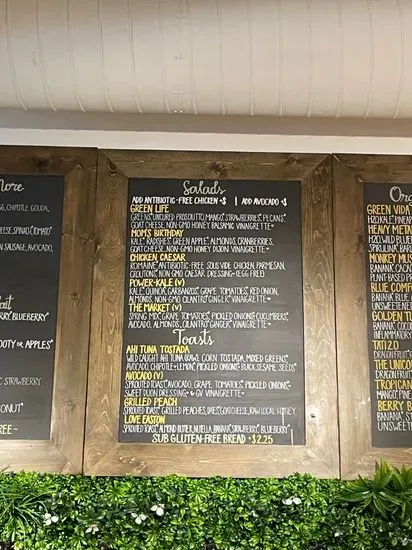 More
EGG, CHIPOTLE GOUDA,
CHEESE, SPINACH, TOMATO*
SAUSAGE, AVOCADO,
BLUEBERRY*
OOTY OR APPLES*
STRAWBERRY
COCONUT*
FREE ~
Salads
ADD ANTIBIOTIC-FREE CHICKEN +$ | ADD AVOCADO +$
GREEN LIFE
GREENS*, UNCURED PROSCIUTTO, MANGO*, STRAWBERRIES*, PECANS*,
GOAT CHEESE, NON-GMO HONEY BALSAMIC VINAIGRETTE ♥
MOM'S BIRTHDAY
KALE*, RADISHES*, GREEN APPLE*, ALMONDS, CRANBERRIES,
GOAT CHEESE, NON-GMO HONEY DIJON VINAIGRETTE ♥
CHICKEN CAESAR
ROMAINE*, ANTIBIOTIC-FREE SOUS VIDE CHICKEN, PARMESAN,
CROUTONS, NON-GMO CAESAR DRESSING (EGG FREE)
POWER-KALE (V)
KALE*, QUINOA*, GARBANZOS*, GRAPE TOMATOES*, RED ONION,
ALMONDS, NON-GMO CILANTRO* GINGER* VINAIGRETTE ♥
THE MARKET (V)
SPRING MIX*, GRAPE TOMATOES*, PICKLED ONIONS*, CUCUMBERS*,
AVOCADO, ALMONDS, CILANTRO* GINGER* VINAIGRETTE ♥
Toasts
AHI TUNA TOSTADA
WILD CAUGHT AHI TUNA (RAW), CORN TOSTADA, MIXED GREENS*,
AVOCADO, CHIPOTLE + LEMON*, PICKLED ONIONS*, BLACK SESAME SEEDS*
AVOCADO (V)
SPROUTED TOAST*, AVOCADO, GRAPE TOMATOES*, PICKLED ONIONS*,
SWEET DIJON DRESSING ~ GV VINAIGRETTE ♥
GRILLED PEACH
SPROUTED TOAST*, GRILLED PEACHES, DATES*, GOAT CHEESE, RAW LOCAL HONEY
LOVE EASTON
SPROUTED TOAST*, ALMOND BUTTER, NUTELLA, BANANA*, STRAWBERRY*, BLUEBERRY*
SUB GLUTEN-FREE BREAD +$2.25
GREEN VIDA
H2O, KALE*, PINEAPPLE
HEAVY METAL
H2O, WILD BLUE
SPIRULINA*, BAR
MONKEY MUS
BANANA*, CACAO
PLANT-BASED
BLUE COMFO
BANANA*, BLUE
UNSWEETENED
GOLDEN TU
BANANA*, COCO
INFLAMMATORY
TATIZO
DRAGON FRUIT
THE UNICO
DRAGON FRUIT
TROPICAN
MANGO*, PINE
BERRY
BANANA*, S
UNSWEETENE